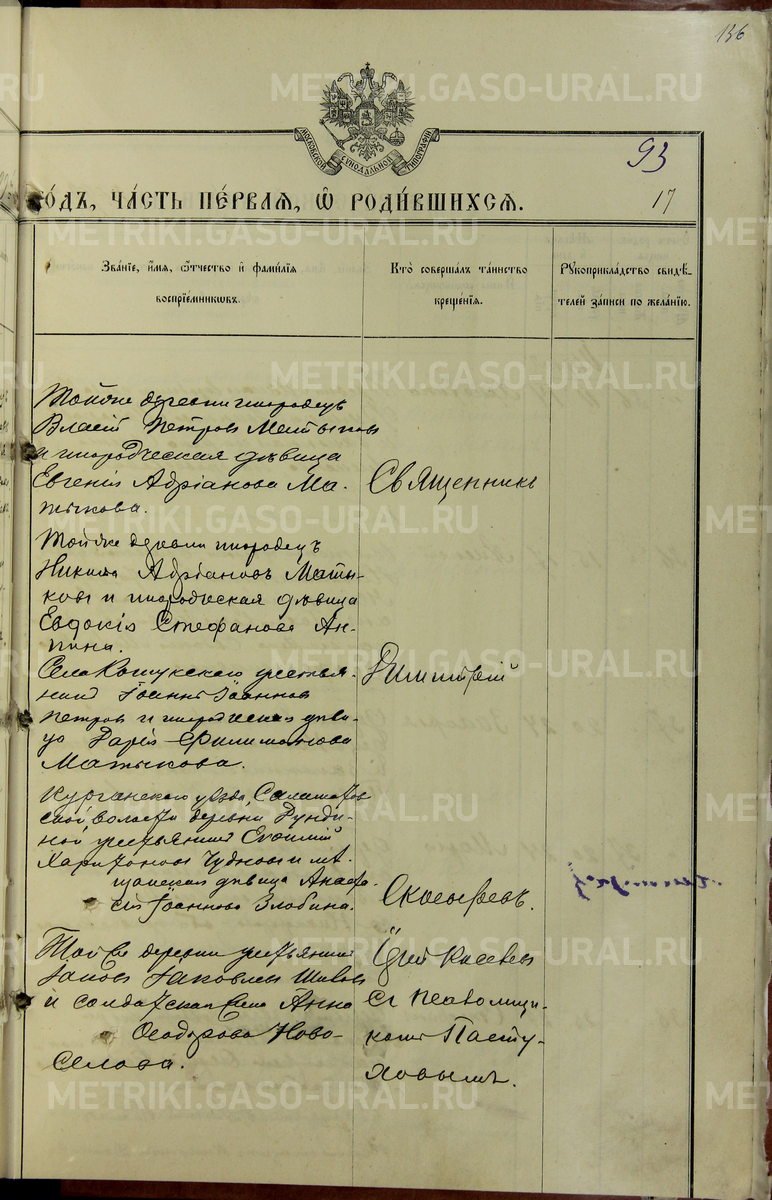 136
93
17
МОСКОВСКОЙ СѴНОДАЛЬНОЙ ТИПОГРАФІИ
го́дъ, ча́сть пе́рвая, ѡ҆ роди́вшихсѧ.
Зва́нїе, и҆́мя, ѻ҆́тчество и҆ фами́лїя
воспрїе́мникѡвъ.
Кто̀ соверша́лъ та́инство
креще́нїя.
Рꙋкоприкла́дство свидѣ́-
телей за́писи по жела́нїю.
Тойже деревни инородецъ
Власій Петровъ
и инородческая дѣвица
Евгенія Адріанова Ма-
тыкова.
Священникъ
Тойже деревни инородецъ
Никита Адріановъ Маты-
ковъ и инородческая дѣвица
Евдокія Стефанова Ан-
пина.
Села Кошукскаго крестья-
нинъ Іоаннъ Іоанновъ
Петровъ и инородческая дѣви-
ца Дарія Филимонова
Матыкова.
Димитрій
Курганскаго уѣзда,
ской волости деревни
ной крестьянинъ Евѳимій
Харитоновъ Чудновъ и мѣ-
щанская дѣвица Анаста-
сія Іоаннова Злобина.
Скосыревъ.
Той же деревни крестьянинъ
Іаковъ Іаковлевъ
и солдатская жена Анна
Ѳеодорова Ново-
селова.
съ псаломщи-
комъ Пасту-
ховымъ.
METRIKI.GASO-URAL.RU